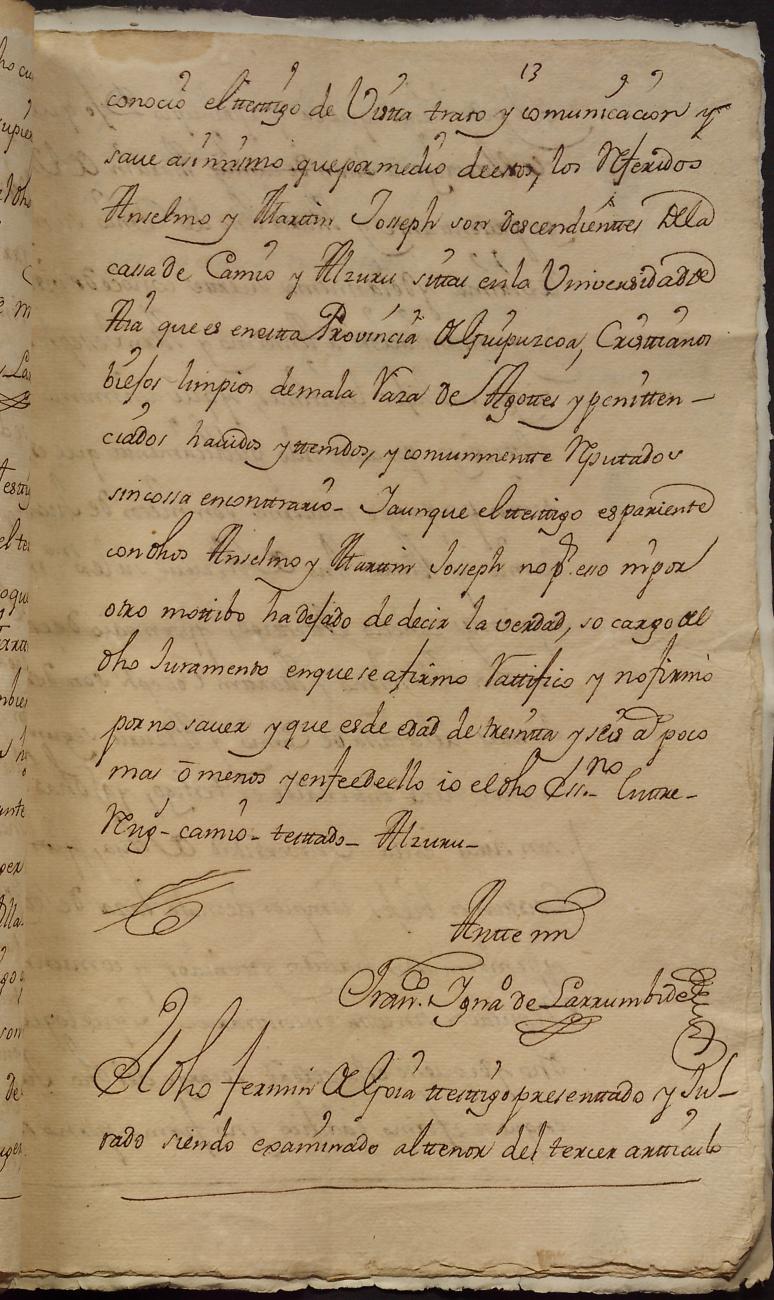 13
conocio el testtigo de Vistta trato y comunicacion y
saue asimismo que por medio de estos, los Referidos
Anselmo y Martin Joseph son descendienttes de la
cassa de Camio y Alzuru sittas en la Universidad de
Aia que es en estta Provincia de Guipuzcoa, Cristtianos
biejos limpios de mala Raza de Agottes y penitten-
ciados hauidos y ttenidos, y comunmentte Reputados
sin cossa en conttrario - Y aunque el testtigo es pariente
con dhos Anselmo y Marttin Joseph no pr. esso ni por
otro mottibo ha dejado de decir la verdad, so cargo del
dho Juramento en que se afirmo Rattifico y no firmo
por no sauer y que es de edad de treintta y seis as poco
mas o menos y en fee de ello io el dho Essno. Enttre-
Reng- camio - testtado - Alzuru -
Antte mi
Franco. Ignao. de Larrumbide
El dho Fermin de Goia testtigo presenttado y Ju-
rado siendo examinado al ttenor del tercer articulo